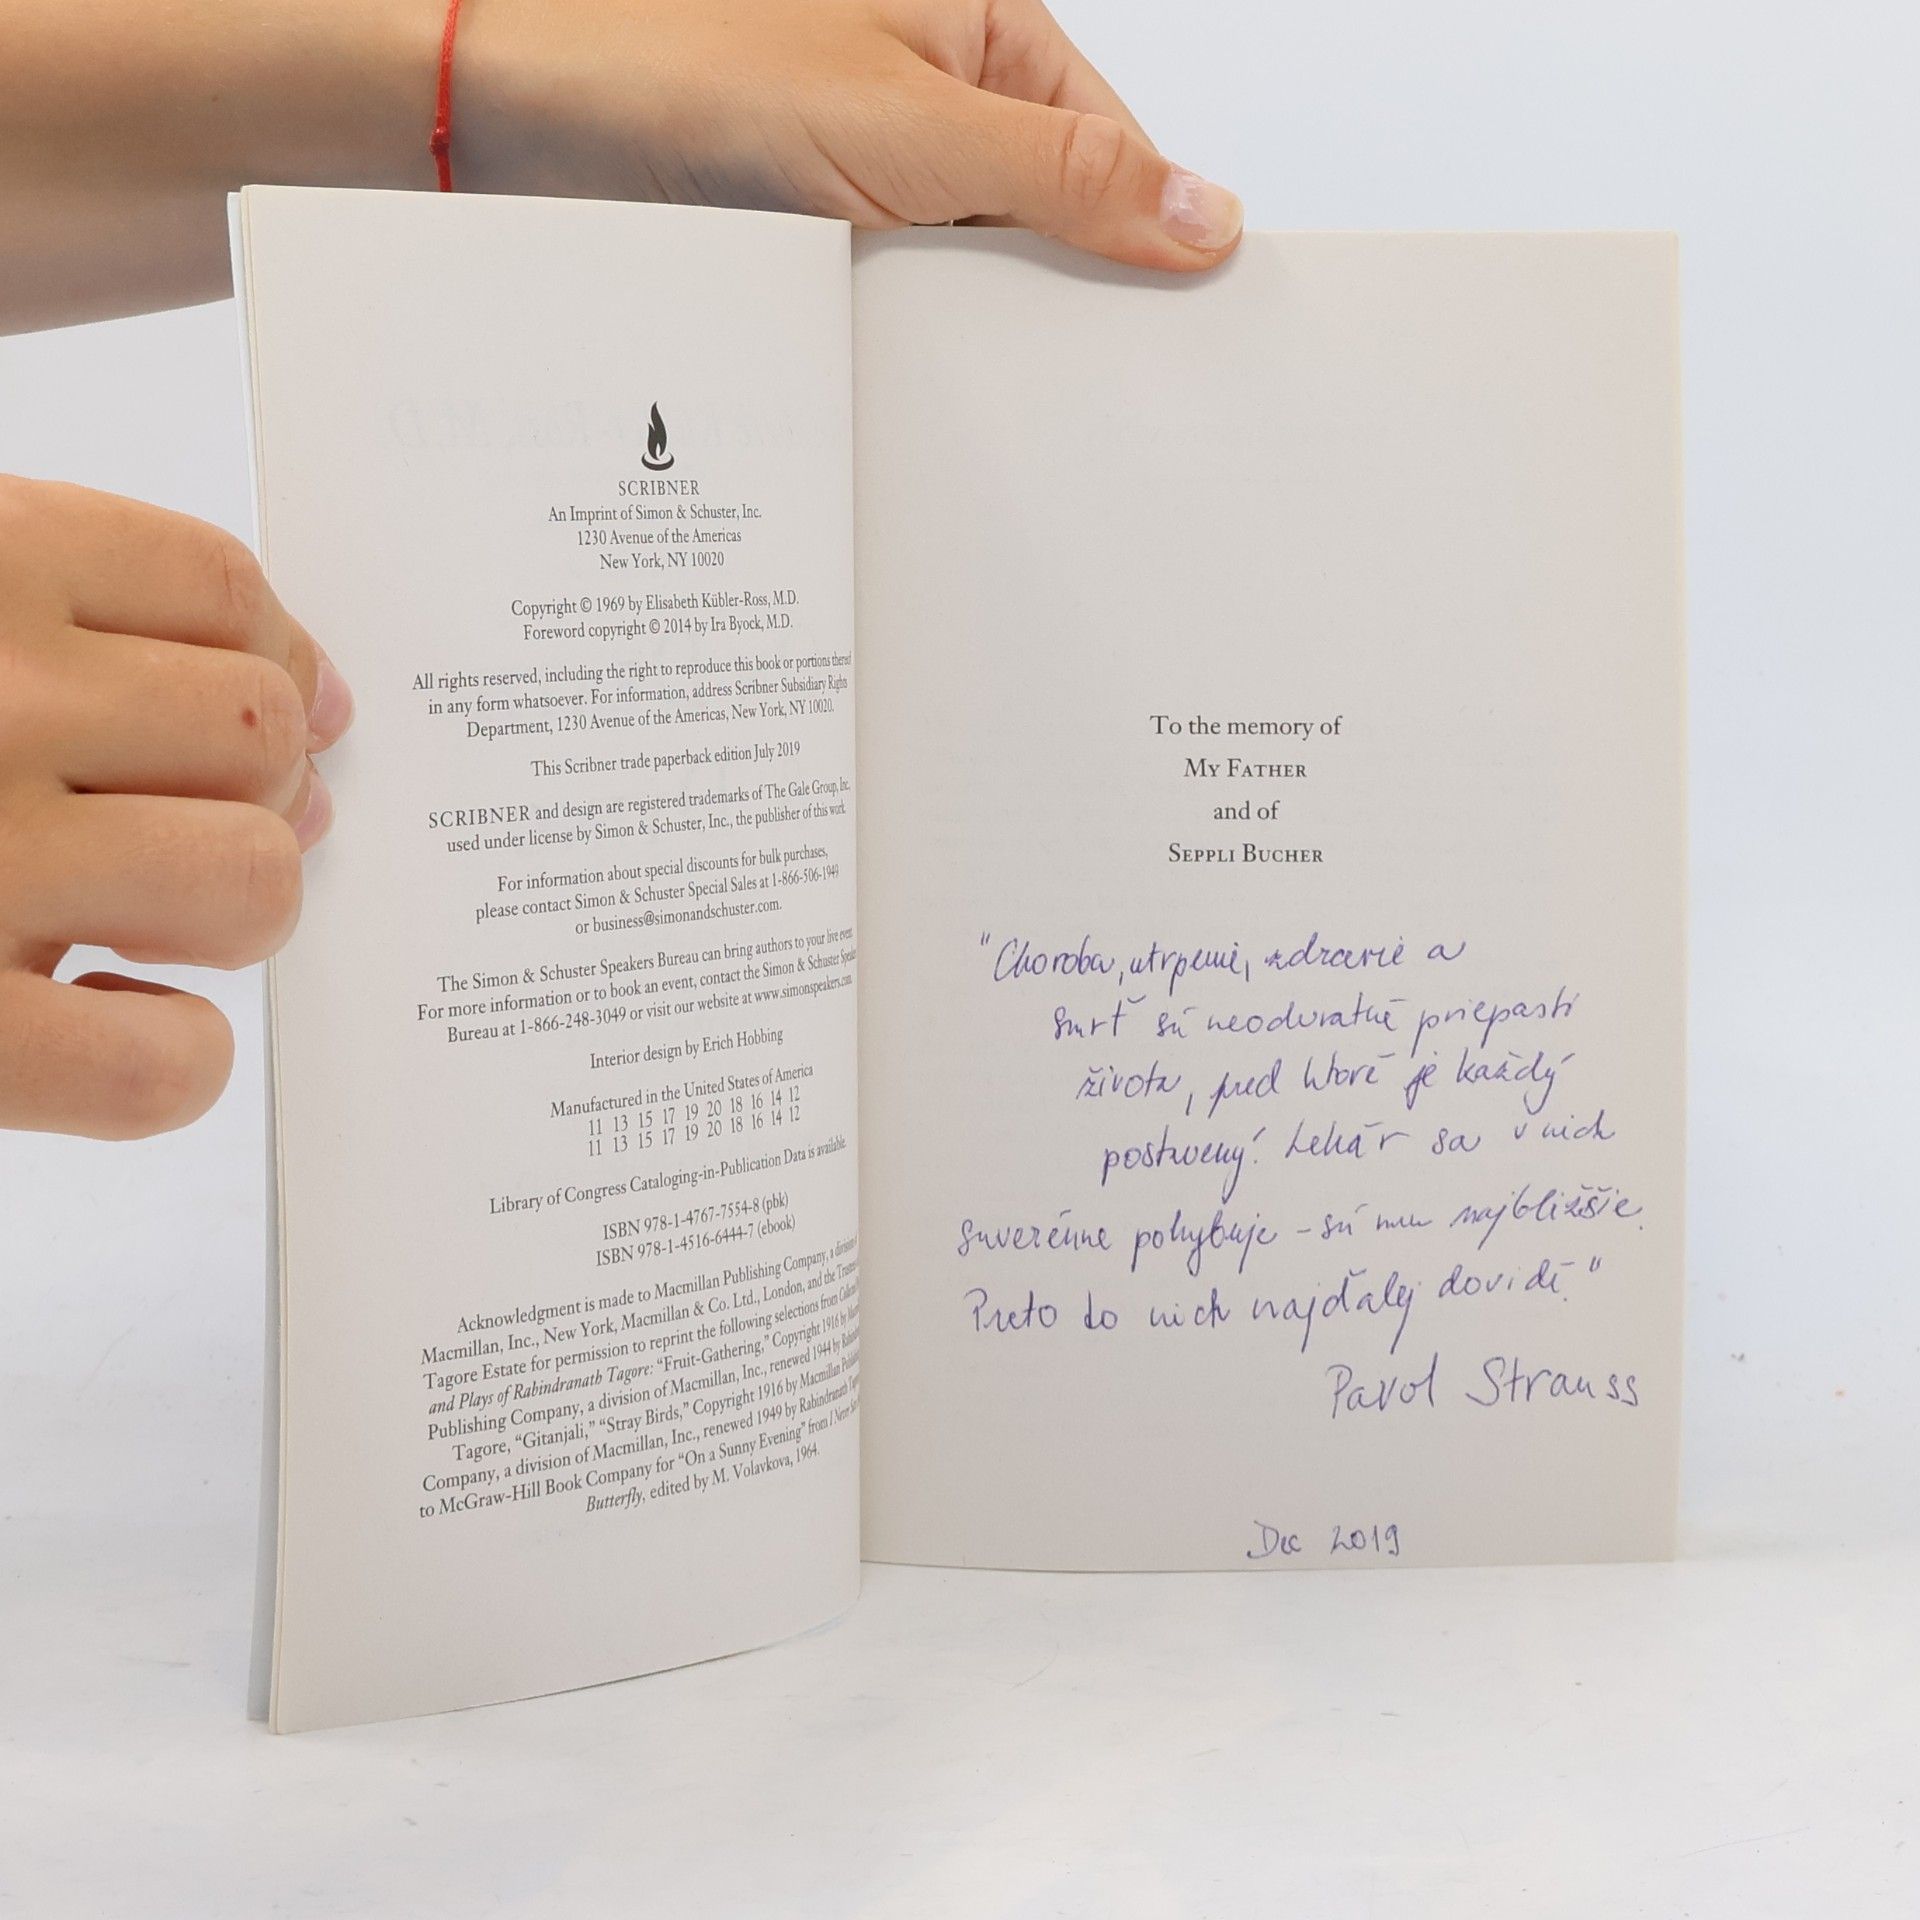 SCRIBNER
An Imprint of Simon & Schuster, Inc.
1230 Avenue of the Americas
New York, NY 10020
Copyright © 1969 by Elisabeth Kübler-Ross, M.D.
Foreword copyright © 2014 by Ira Byock, M.D.
All rights reserved, including the right to reproduce this book or portions thereof
in any form whatsoever. For information, address Scribner Subsidiary Rights
Department, 1230 Avenue of the Americas, New York, NY 10020.
This Scribner trade paperback edition July 2019
SCRIBNER and design are registered trademarks of The Gale Group, Inc.,
used under license by Simon & Schuster, Inc., the publisher of this work.
For information about special discounts for bulk purchases,
please contact Simon & Schuster Special Sales at 1-866-506-1949
or business@simonandschuster.com.
The Simon & Schuster Speakers Bureau can bring authors to your live event.
For more information or to book an event, contact the Simon & Schuster Speakers
Bureau at 1-866-248-3049 or visit our website at www.simonspeakers.com.
Interior design by Erich Hobbing
Manufactured in the United States of America
11 13 15 17 19 20 18 16 14 12
11 13 15 17 19 20 18 16 14 12
Library of Congress Cataloging-in-Publication Data is available.
ISBN 978-1-4767-7554-8 (pbk)
ISBN 978-1-4516-6444-7 (ebook)
Acknowledgment is made to Macmillan Publishing Company, a division of
Macmillan, Inc., New York, Macmillan & Co. Ltd., London, and the Trustees
Tagore Estate for permission to reprint the following selections from
and Plays of Rabindranath Tagore: “Fruit-Gathering,” Copyright 1916 by
Publishing Company, a division of Macmillan, Inc., renewed 1944 by Rabindranath
Tagore, “Gitanjali,” “Stray Birds,” Copyright 1916 by Macmillan Publishing
Company, a division of Macmillan, Inc., renewed 1949 by Rabindranath
to McGraw-Hill Book Company for “On a Sunny Evening” from I Never
Butterfly, edited by M. Volavkova, 1964.
To the memory of
My Father
and of
Seppli Bucher
"Choroba, utrpenie, zdravie a
smrť sú neodvratné priepasti
života, pred ktoré je každý
postavený! Lekár sa v nich
suverénne pohybuje - sú mu najbližšie.
Preto do nich najďalej dovidí."
Pavol Strauss
Dec 2019